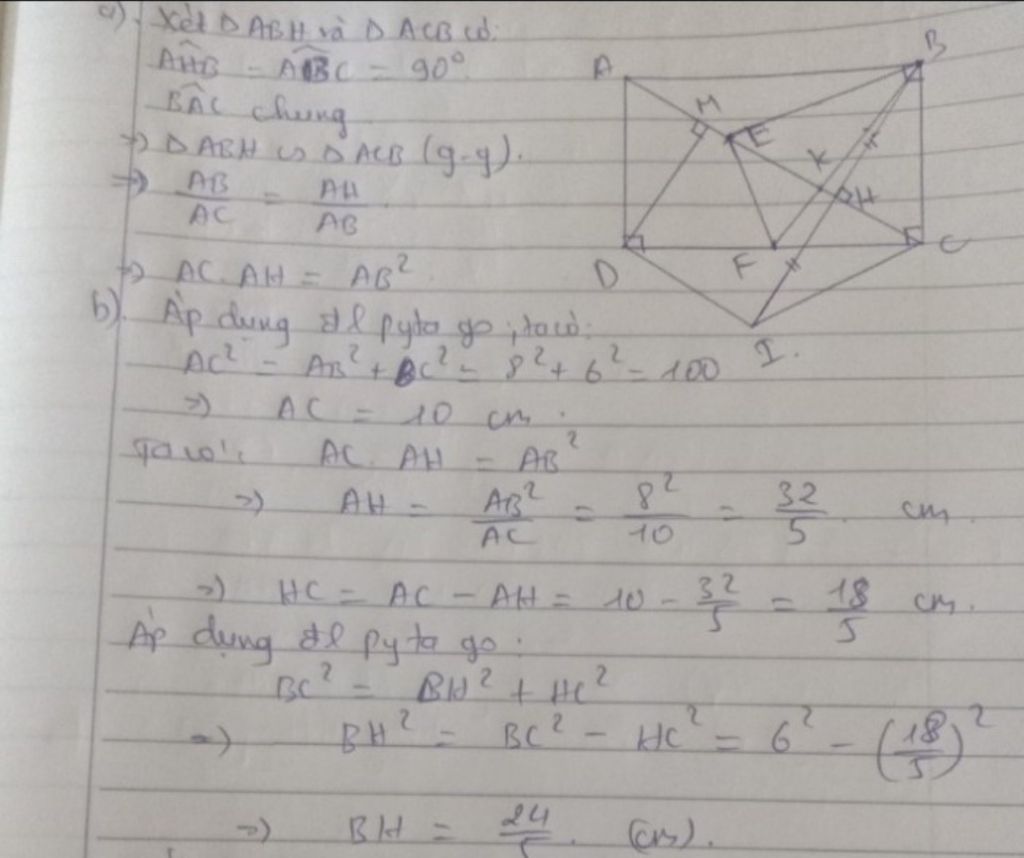 a). Xét Δ ABH và Δ ACB có:
AHB = ABC = 90°
BAC chung
=> Δ ABH ∽ Δ ACB (g-g).
=> AB/AC = AH/AB
=> AC. AH = AB²
b). Áp dụng đl pyta go, ta có:
AC² = AB² + BC² = 8² + 6² = 100
=> AC = 10 cm.
Ta có: AC. AH = AB²
=> AH = AB²/AC = 8²/10 = 32/5 cm
=> HC = AC - AH = 10 - 32/5 = 18/5 cm.
Áp dụng đl pyta go:
BC² = BH² + HC²
=> BH² = BC² - HC² = 6² - (18/5)²
=> BH = 24/5 (cm).
A
B
M
E
K
H
D
F
C
I.